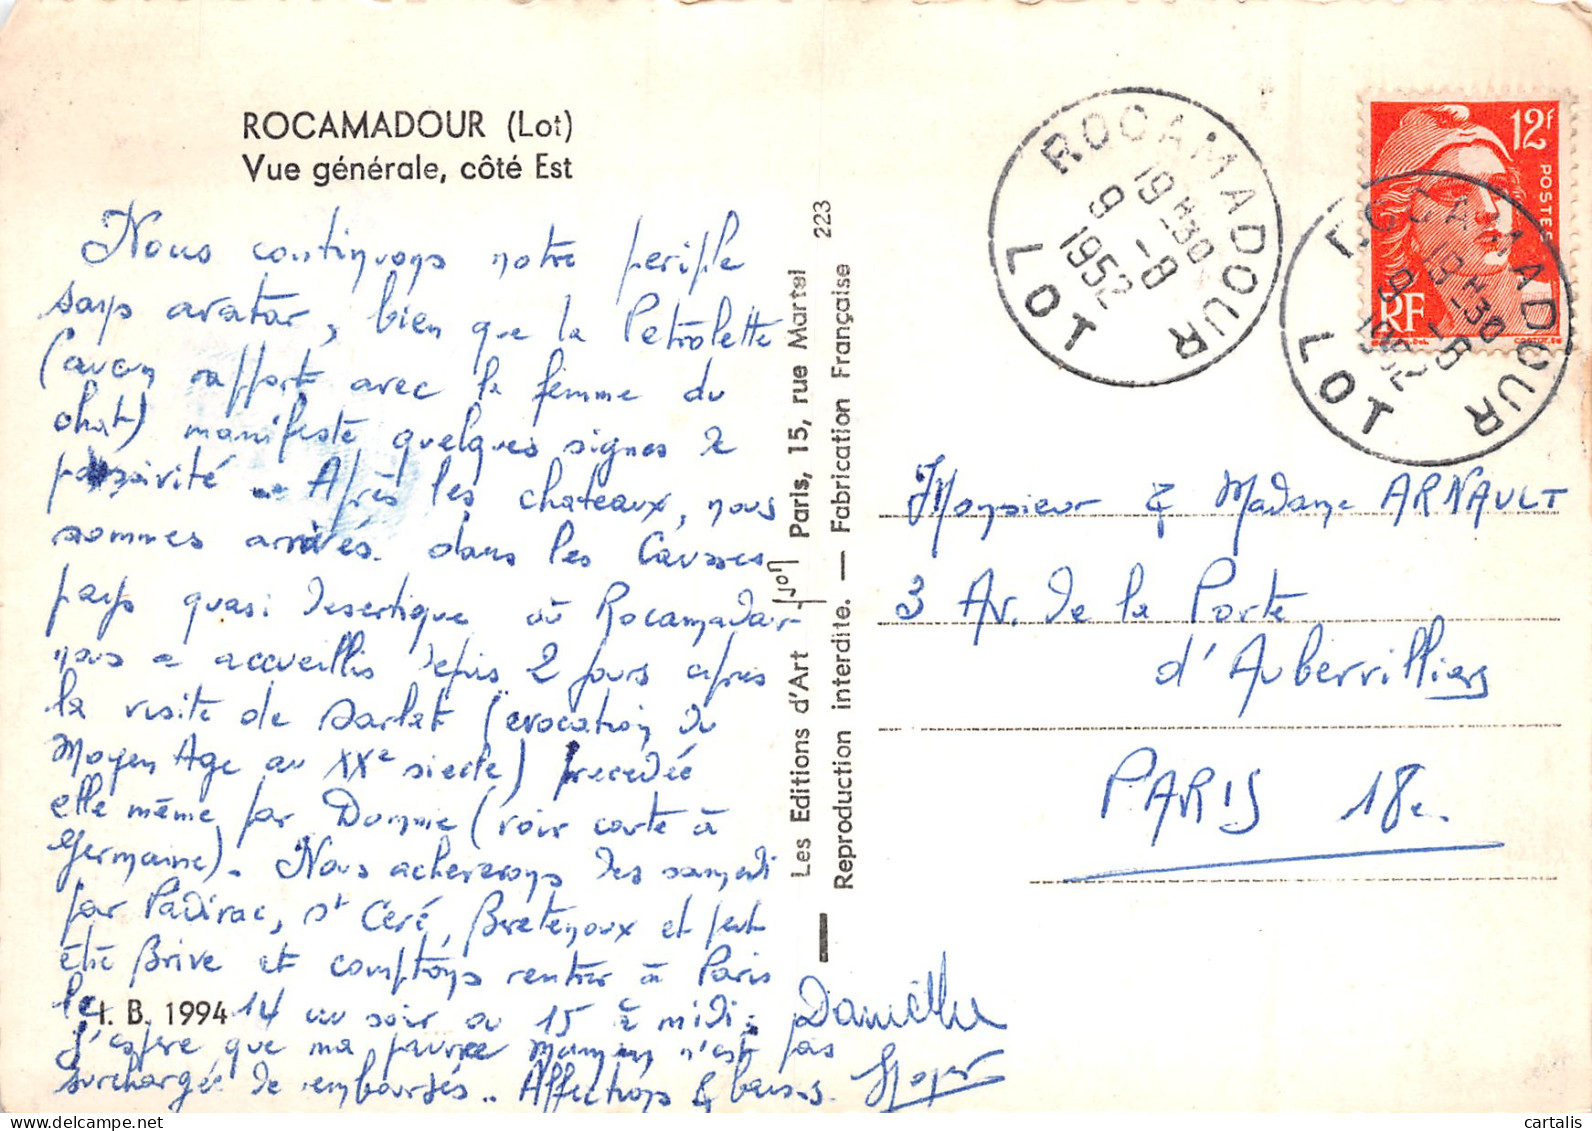 ROCAMADOUR (Lot)
Vue générale, côté Est
Nous continuons notre periple
sans avatar, bien que la Petrolette
(aucun rapport avec la femme du
chat) manifeste quelques signes de
passivité - Après les chateaux, nous
sommes arrivés dans les Causses
pays quasi desertique où Rocamadour
nous a accueillis depuis 2 jours après
la visite de Sarlat (evocation du
Moyen Age au XXe siecle) precedée
elle même par Domme (voir carte à
Germaine). Nous acheverons des samedi
par Padirac, St Ceré, Bretenoux et peut
être Brive et comptons rentrer à Paris
le 14 au soir ou 15 à midi.
J'espere que ma pauvre Maman n'est pas
surchargée de rembarsés.. Affections & baisers.
Danielle
Roger
I. B. 1994
223
Les Editions d'Art Yvon Paris, 15, rue Martel
Reproduction interdite. — Fabrication Française
ROCAMADOUR
19H30
9 -8
1952
LOT
ROCAMADOUR
19H30
9 -8
1952
LOT
12f
POSTES
RF
Monsieur & Madame ARNAULT
3 Av. de la Porte
d'Aubervilliers
PARIS 18e.
cartalis